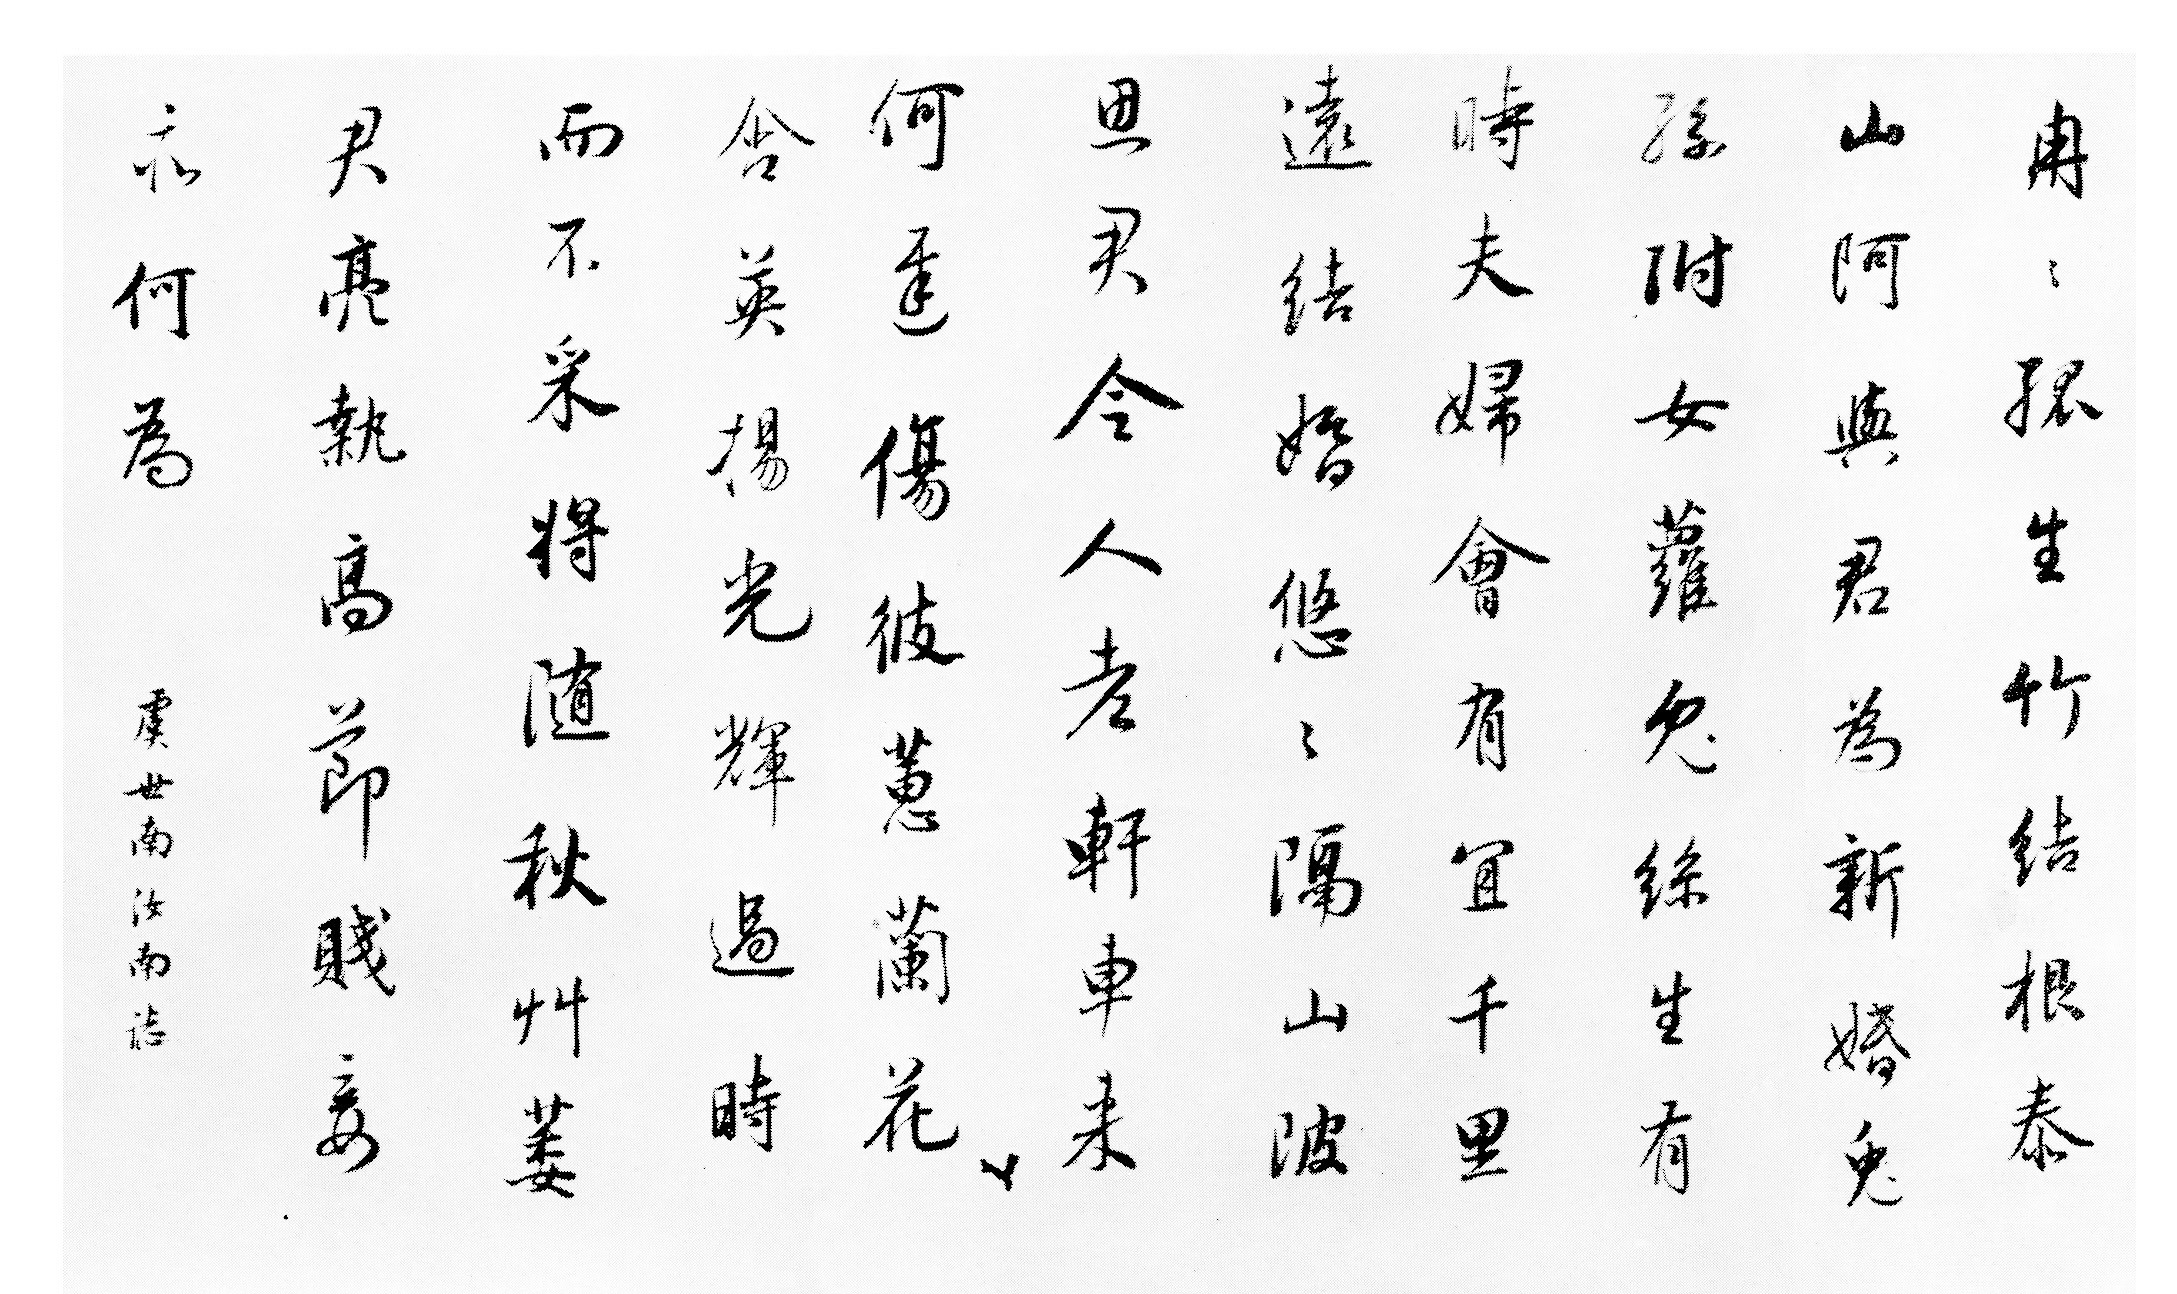 冉〻孤生竹結根泰
山阿與君為新婚兔
絲附女蘿兔絲生有
時夫婦會有宜千里
遠結婚悠〻隔山陂
思君令人老軒車来
何遲傷彼蕙蘭花
含英揚光輝過時
而不采將隨秋艸萎
君亮執高節賤妾
亦何為
虞世南汝南誌